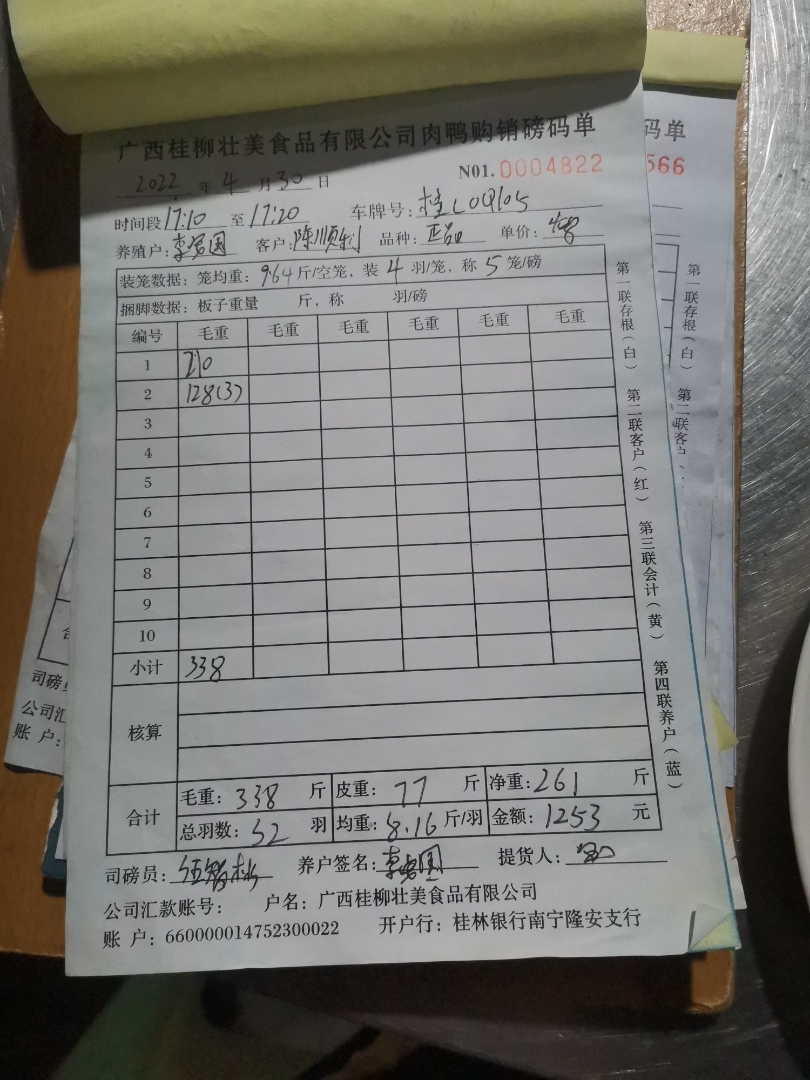 广西桂柳壮美食品有限公司肉鸭购销磅码单
2022 年 4 月 30 日 N01. 0004822
时间段 17:10 至 17:20 车牌号:桂L0Q105
养殖户: 客户:陈顺利 品种:正品 单价:
装笼数据:笼均重:9.64斤/空笼,装 4 羽/笼,称 5 笼/磅
捆脚数据:板子重量 斤,称 羽/磅
编号 毛重 毛重 毛重 毛重 毛重 毛重
1 210
2 128(3)
3
4
5
6
7
8
9
10
小计 338
核算
合计 毛重:338 斤 皮重:77 斤 净重:261 斤
总羽数:32 羽 均重:8.16 斤/羽 金额:1253 元
司磅员: 养户签名: 提货人:
公司汇款账号: 户名:广西桂柳壮美食品有限公司
账 户:660000014752300022 开户行:桂林银行南宁隆安支行
第一联存根(白) 第二联客户(红) 第三联会计(黄) 第四联养户(蓝)
码单
566
第一联存根(白) 第二联客户
司磅员
公司汇
账 户: